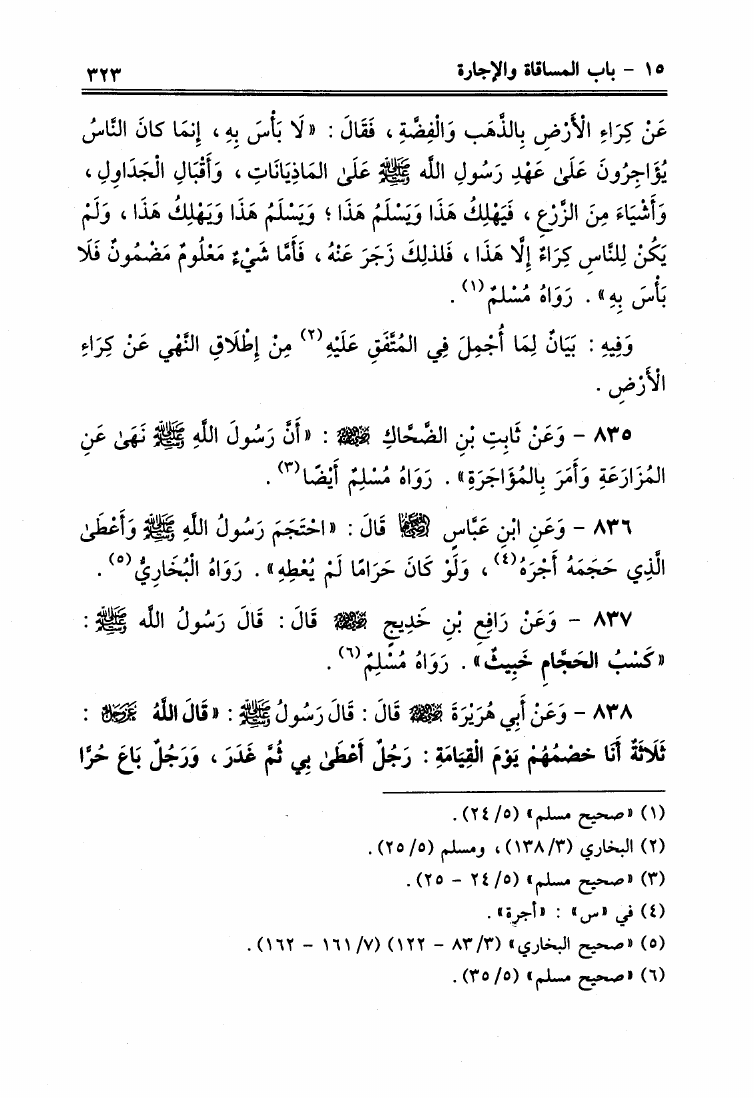 ١٥ - باب المساقاة والإجارة ٣٢٣
عَنْ كِرَاءِ الْأَرْضِ بِالذَّهَبِ وَالْفِضَّةِ ، فَقَالَ : «لَا بَأْسَ بِهِ ، إِنمَا كانَ النَّاسُ
يُؤَاجِرُونَ عَلَىٰ عَهْدِ رَسُولِ اللَّه ﷺ عَلَىٰ المَاذِيَانَاتِ ، وَأَقْبَالِ الْجَدَاوِلِ ،
وَأَشْيَاءَ مِنَ الزَّرْعِ ، فَيَهْلِكُ هَذَا وَيَسْلَمُ هَذَا ؛ وَيَسْلَمُ هَذَا وَيَهْلِكُ هَذَا ، وَلَمْ
يَكُنْ لِلنَّاسِ كِرَاءٌ إِلَّا هَذَا ، فَلذلِكَ زَجَرَ عَنْهُ ، فَأَمَّا شَيْءٌ مَعْلُومٌ مَضْمُونٌ فَلَا
بَأْسَ بِهِ» . رَوَاهُ مُسْلمٌ (١) .
وَفِيهِ : بَيَانٌ لِمَا أُجْمِلَ فِي المُتَّفَقِ عَلَيْهِ (٢) مِنْ إِطْلَاقِ النَّهْي عَنْ كِرَاءِ
الْأَرْضِ .
٨٣٥ - وَعَنْ ثَابِتِ بْنِ الضَّحَّاكِ رضي الله عنه : «أَنَّ رَسُولَ اللَّهِ ﷺ نَهَىٰ عَنِ
المُزَارَعَةِ وَأَمَرَ بِالمُؤَاجَرَةِ» . رَوَاهُ مُسْلِمٌ أَيْضًا (٣) .
٨٣٦ - وَعَنِ ابْنِ عَبَّاسٍ رضي الله عنهما قَالَ : «احْتَجَمَ رَسُولُ اللَّهِ ﷺ وَأَعْطَىٰ
الَّذِي حَجَمَهُ أَجْرَهُ (٤) ، وَلَوْ كَانَ حَرَامًا لَمْ يُعْطِهِ» . رَوَاهُ الْبُخَارِيُّ (٥) .
٨٣٧ - وَعَنْ رَافِعِ بْنِ خَدِيجٍ رضي الله عنه قَالَ : قَالَ رَسُولُ اللَّه ﷺ :
«كَسْبُ الحَجَّامِ خَبِيثٌ» . رَوَاهُ مُسْلِمٌ (٦) .
٨٣٨ - وَعَنْ أَبِي هُرَيْرَةَ رضي الله عنه قَالَ : قَالَ رَسُولُ ﷺ : «قَالَ اللَّهُ عَزَّ وَجَلَّ :
ثَلَاثَةٌ أَنَا خَصْمُهُمْ يَوْمَ الْقِيَامَةِ : رَجُلٌ أَعْطَىٰ بِي ثُمَّ غَدَرَ ، وَرَجُلٌ بَاعَ حُرًّا
(١) «صحيح مسلم» (٥/ ٢٤) .
(٢) البخاري (٣/ ١٣٨) ، ومسلم (٥/ ٢٥) .
(٣) «صحيح مسلم» (٥/ ٢٤ - ٢٥) .
(٤) في «س» : «أجرة» .
(٥) «صحيح البخاري» (٣/ ٨٣ - ١٢٢) (٧/ ١٦١ - ١٦٢) .
(٦) «صحيح مسلم» (٥/ ٣٥) .